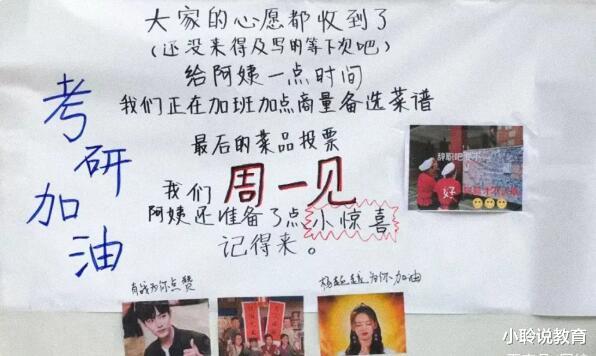 大家的心愿都收到了
(还没来得及写的等下次吧)
给阿姨一点时间
我们正在加班加点商量备选菜谱
最后的菜品投票
我们周一见
阿姨还准备了点小惊喜
记得来。
考研加油
辞职吧
好
肖战为你点赞
杨超越为你加油
小聆说教育